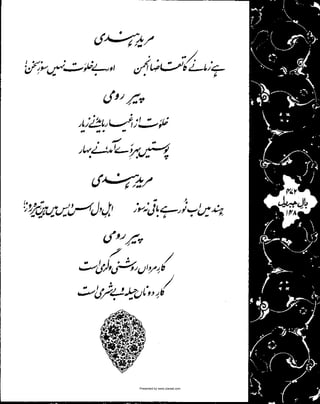 مریدِ ہندی
ہے زمانے کا تقاضا انجمن
اور بے خلوت نہیں سوزِ سخن!
پیرِ رومی
خلوت از اغیار باید، نے ز یار
پوستیں بہرِ دَے آمد، نے بہار
مریدِ ہندی
ہند میں اب نور ہے باقی نہ سوز
اہلِ دل اس دیس میں ہیں تیرہ روز!
پیرِ رومی
کارِ مرداں روشنی و گرمی است
کارِ دوناں حیلہ و بے شرمی است
۴۷۲
بالِ جبریل
۱۴۸
Presented by www.ziaraat.com